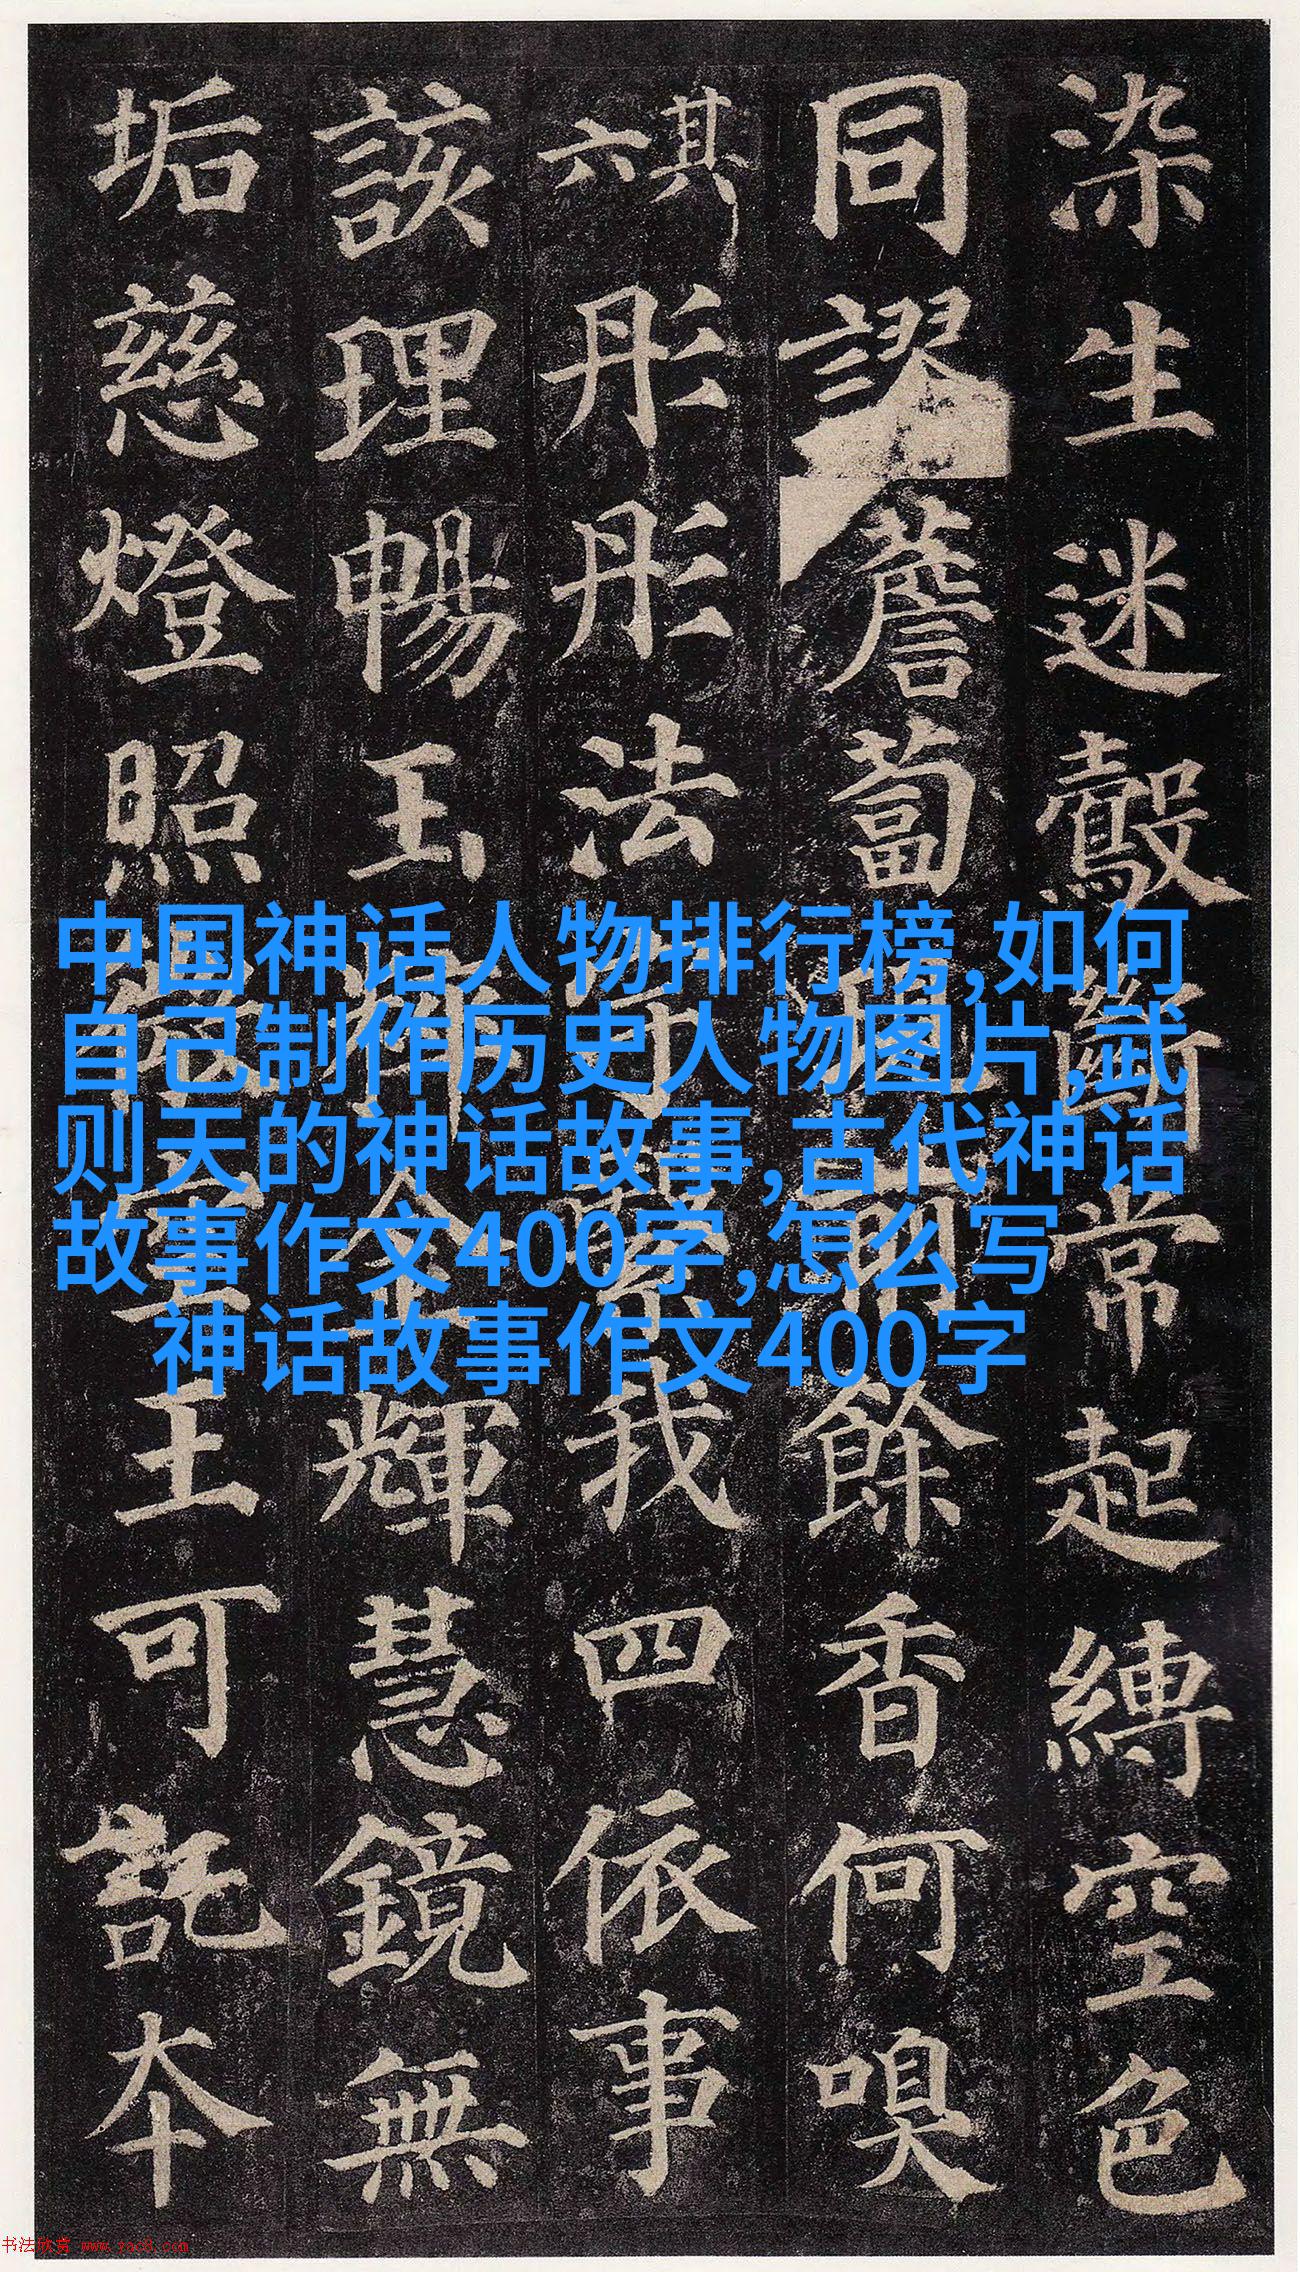 染生迷鷇斷常起縛空色
同謬薝蔔現前餘香何嗅
其六彤彤法宇繄我四依事
該理暢玉粹金輝慧鏡無
垢慈燈照微空王可託本
中国神话人物排行榜,如何
自己制作历史人物图片,武
则天的神话故事,古代神话
故事作文400字,怎么写
神话故事作文400字
书法欣赏 www.yac8.com